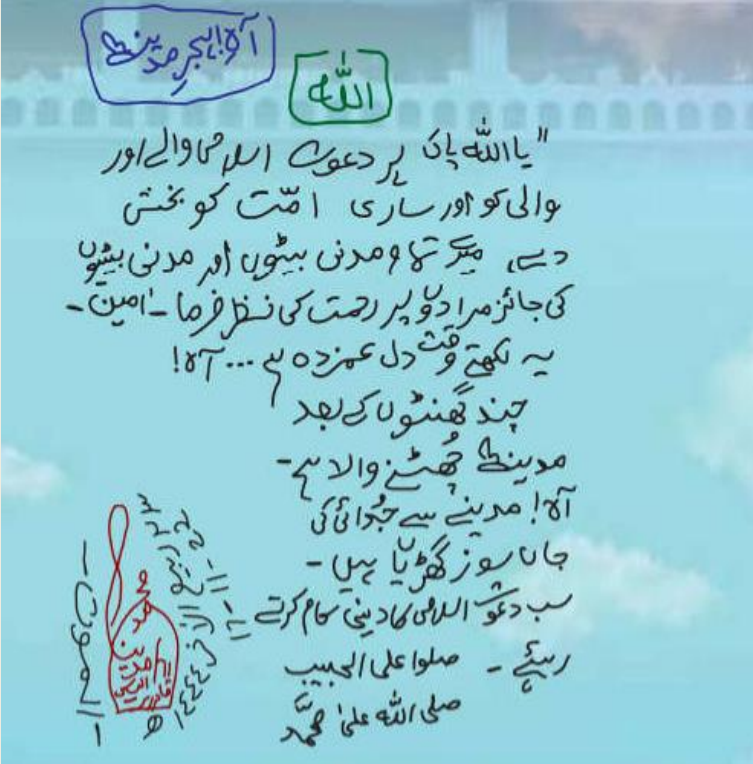 آہ! ہجرِ مدینہ
اللہ
"یا اللہ پاک ہر دعوت اسلامی والے اور
والی کو اور ساری امّت کو بخش
دے، میرے تمام مدنی بیٹوں اور مدنی بیٹیوں
کی جائز مرادوں پر رحمت کی نظر فرما - اٰمین -
یہ لکھتے وقت دل غمزدہ ہے... آہ!
چند گھنٹوں کے بعد
مدینہ چُھٹنے والا ہے -
آہ! مدینے سے جُدائی کی
جاں سوز گھڑیا ہیں -
سب دعوت اسلامی کا دینی کام کرتے
رہیئے - صلوا علی الحبیب
صلی اللہ علیٰ محمَّد
محمد